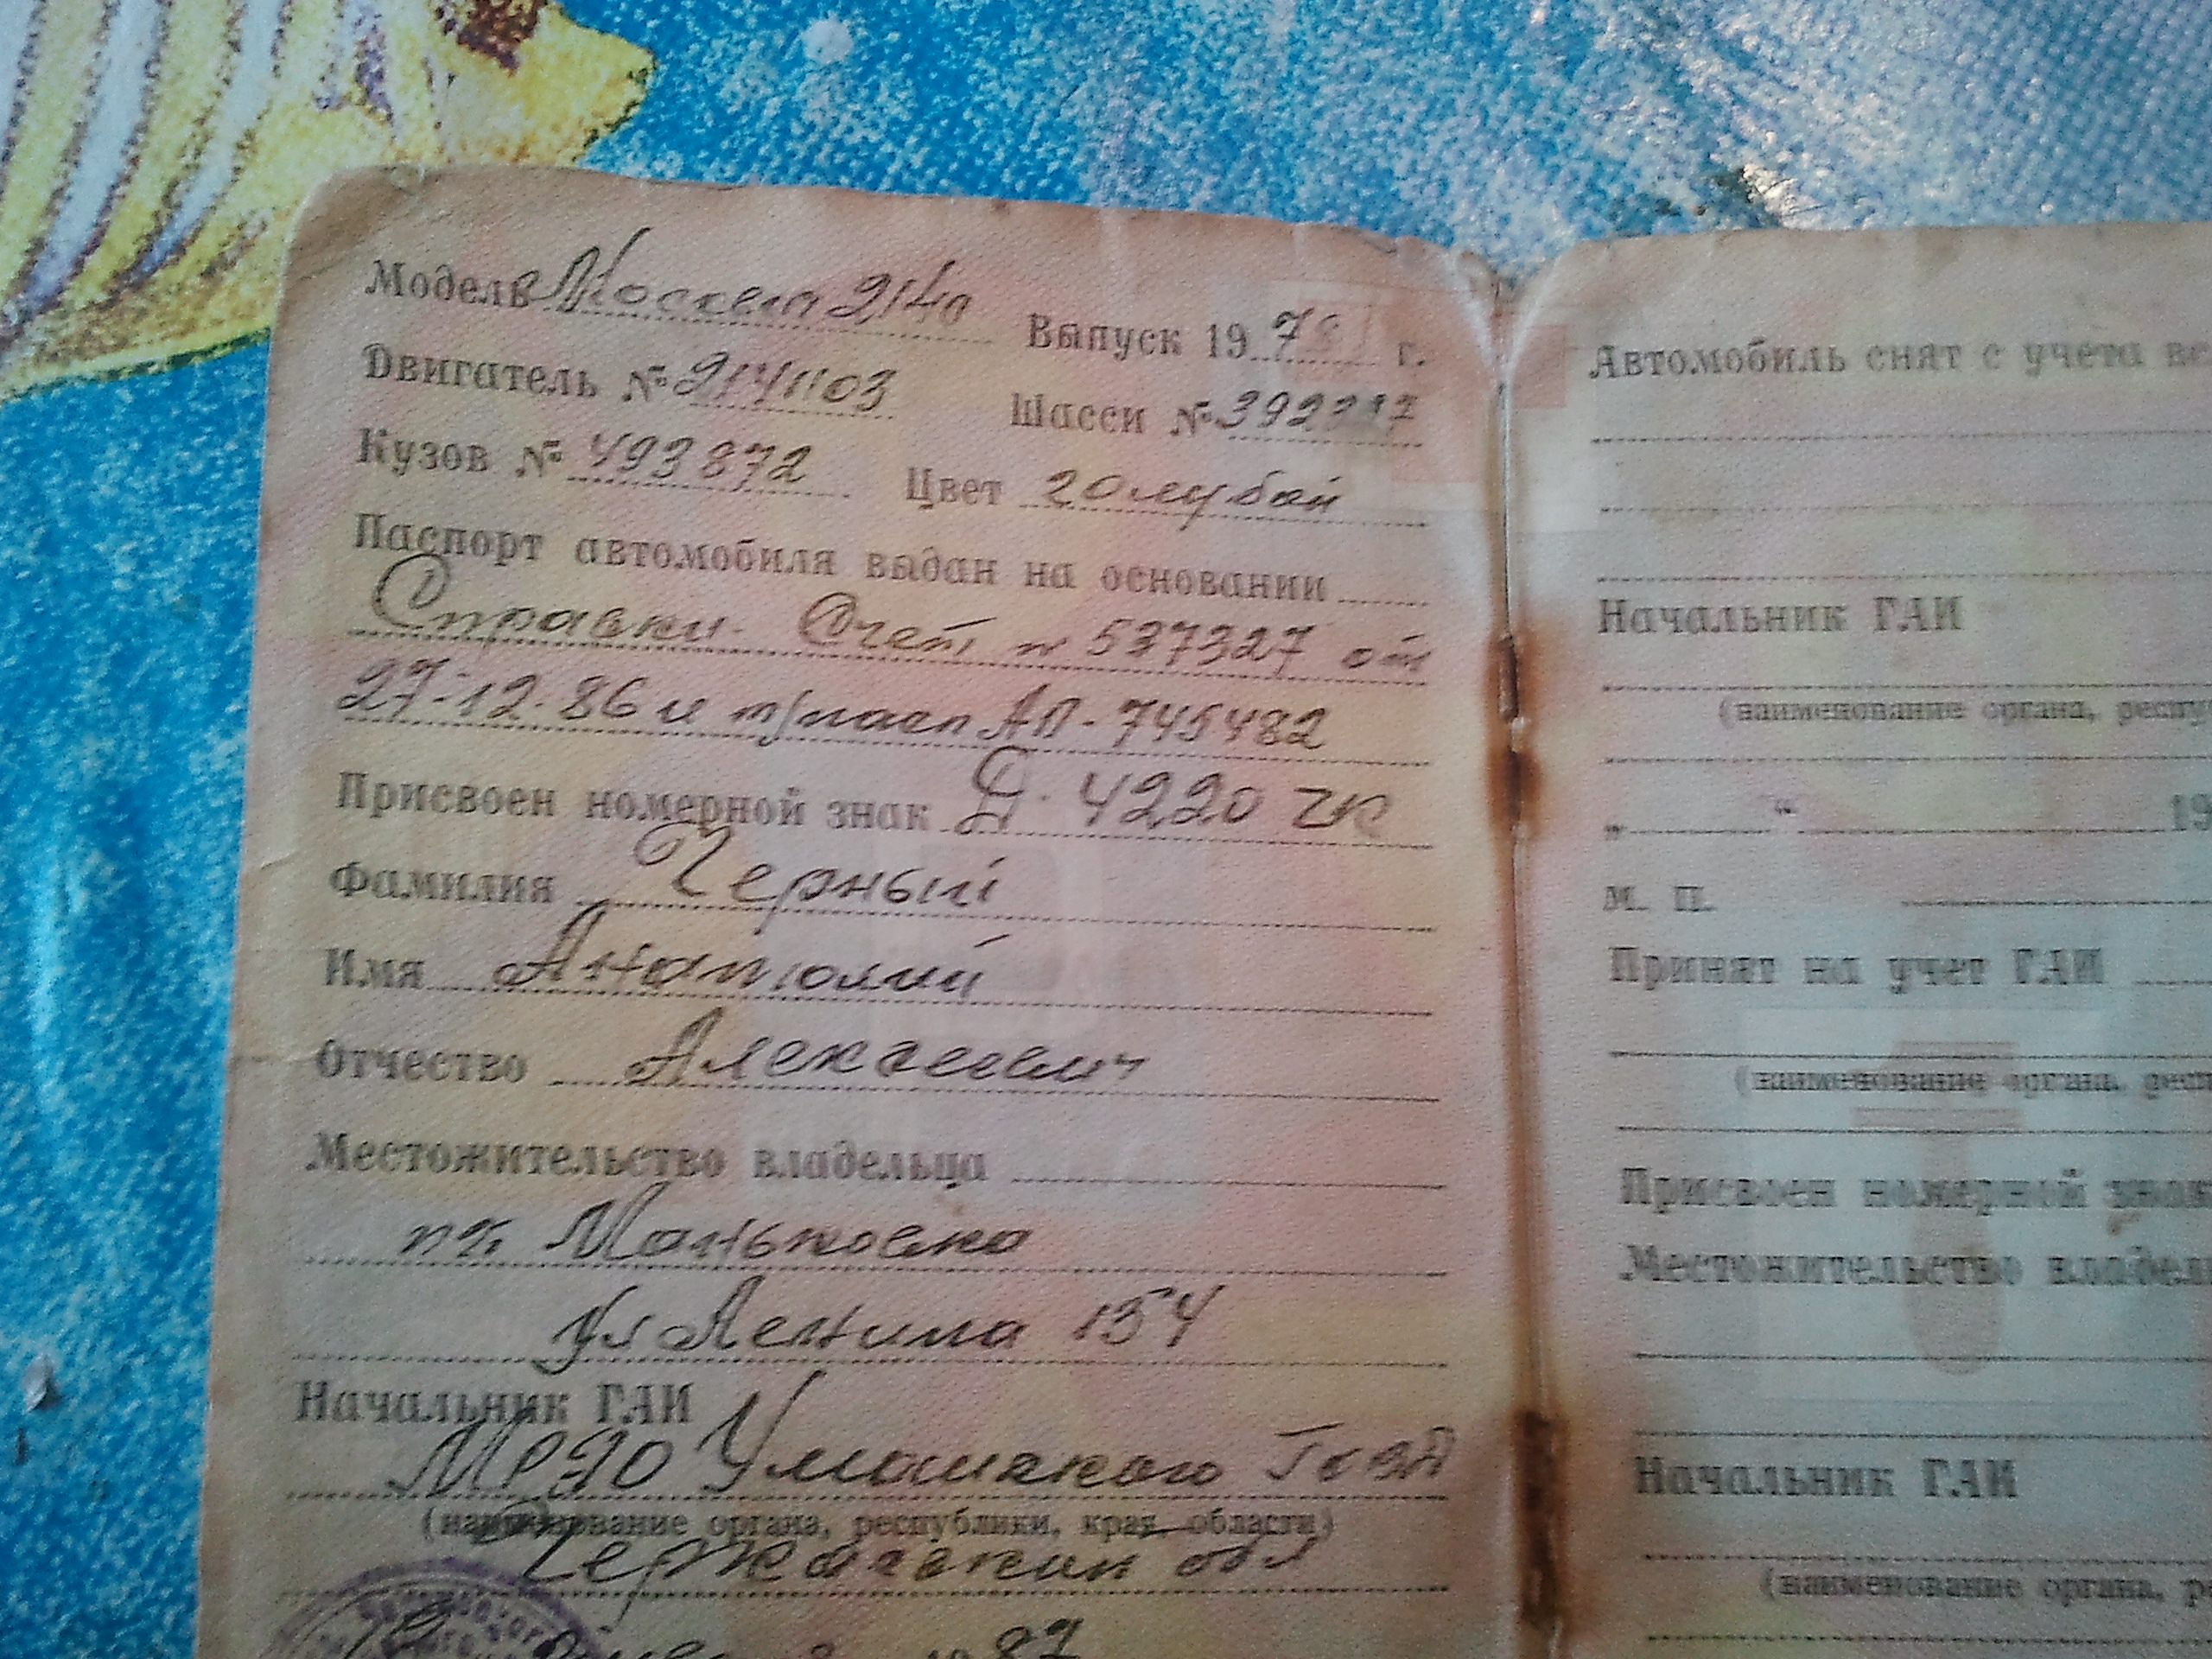 Модель Москвич 2140 Выпуск 19 г.
Двигатель № 2141103 Шасси №
Кузов № 493872 Цвет голубой
Паспорт автомобиля выдан на основании
Справки-Счет № 537327 от
27-12-86 и т/пасп АП-745482
Присвоен номерной знак Д-4220 ЧК
Фамилия Черный
Имя Анатолий
Отчество Алексеевич
Местожительство владельца
Маньковка
ул Ленина 154
Начальник ГАИ
МРЭО Уманского
(наименование органа, республики, края, области)
Черкасской обл
87
Автомобиль снят с учета
Начальник ГАИ
(наименование органа,
„ “ 19
М. П.
Принят на учет ГАИ
(наименование органа,
Присвоен номерной
Местожительство
Начальник ГАИ
(наименование органа,